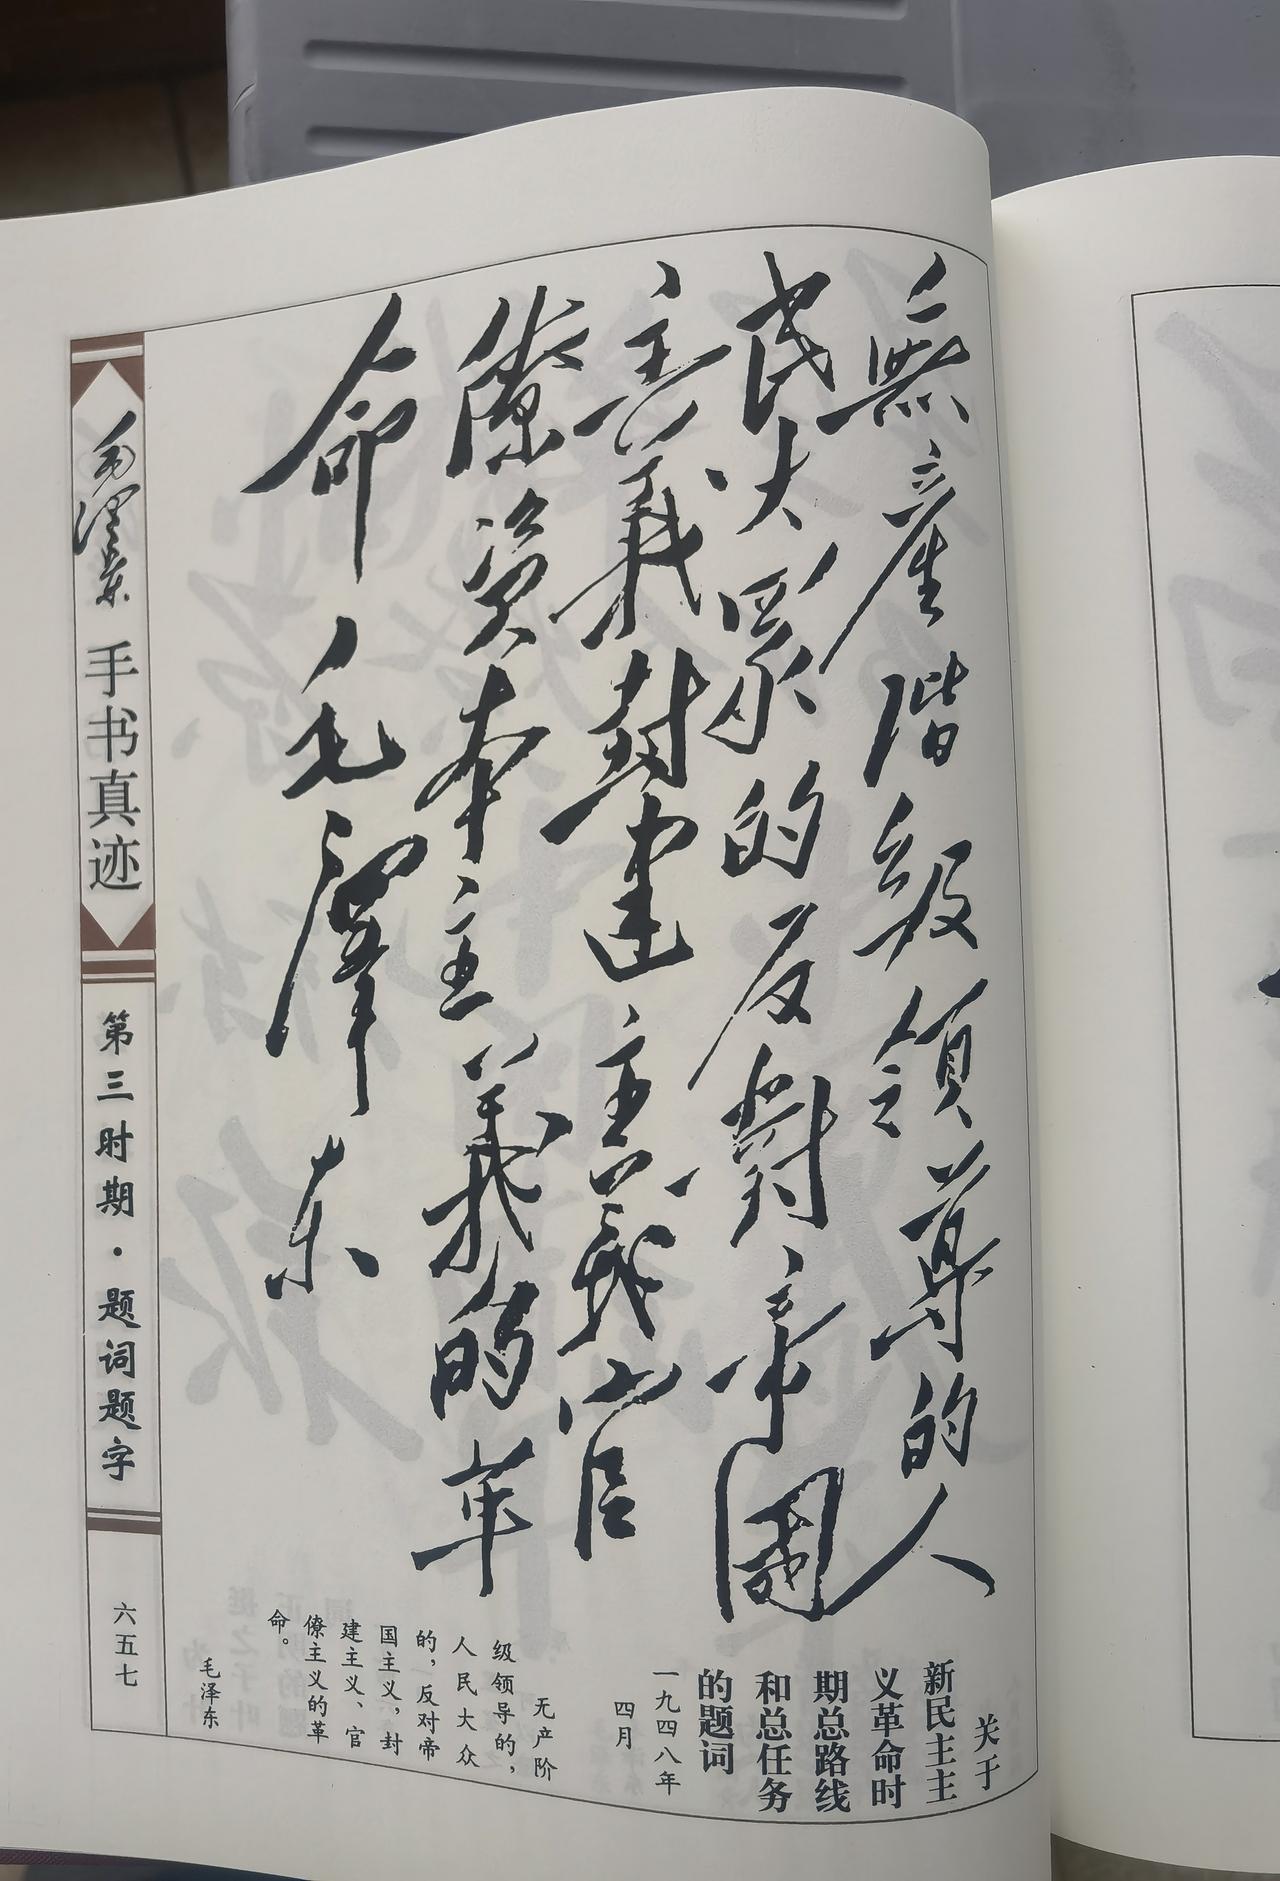 無產階级領導的人
民大眾的反對帝國
主義封建主義官
僚資本主義的革
命 毛澤东
关于
新民主主
义革命时
期总路线
和总任务
的题词
一九四八年
四月
无产阶
级领导的，
人民大众
的，反对帝
国主义，封
建主义、官
僚主义的革
命。
毛泽东
毛澤東 手书真迹
第三时期·题词题字
六五七